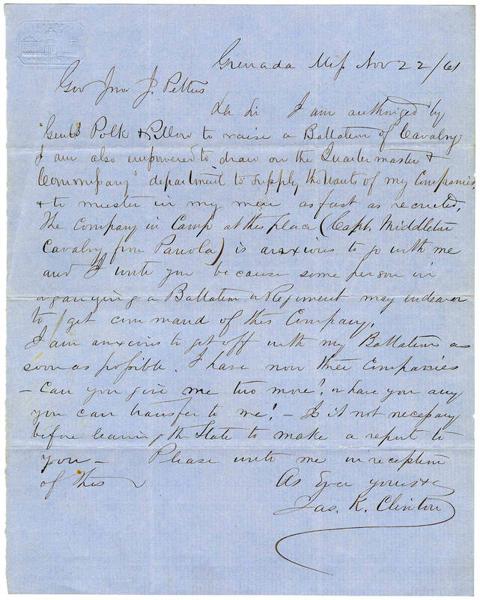 Grenada Miss Nov 22/61
Gov Jno J. Pettus
Dr Sir I am authorized by
Genls Polk & Pillow to raise a Battalion of Cavalry
I am also empowered to draw on the Quartermaster &
Commissary department to supply the wants of my Companies,
& to muster in my men as fast as recruited.
The Company in Camp at this place (Capt. Middleton
Cavalry from Panola) is anxious to go with me
and I write you because some person in
organizing a Battalion or Regiment may indeavor
to get command of this Company.
I am anxious to get off with my Battalion as
soon as possible. I have now three Companies
- Can you give me two more? or have you any
you can transfer to me? - Is it not necessary
before leaving the State to make a report to
you - Please write me on reception
of this
As Ever yours &c
Jas. K. Clinton